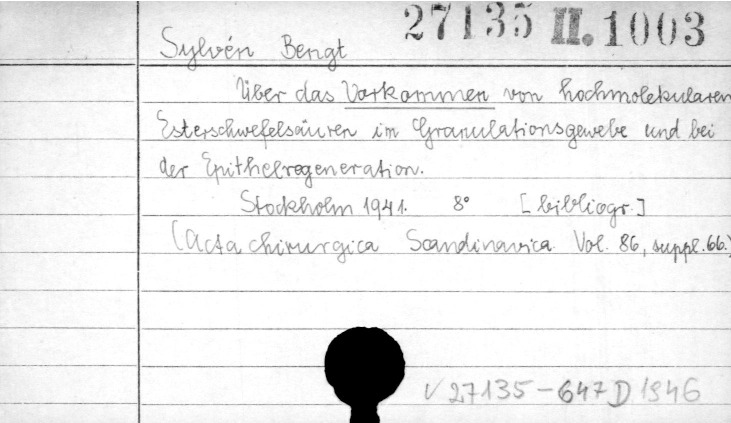 27135 II. 1003
Sylvén Bengt
Über das Vorkommen von hochmolekularen
Esterschwefelsäuren im Granulationsgewebe und bei
der Epithelregeneration.
Stockholm 1941. 8° [bibliogr.]
(Acta chirurgica Scandinavica Vol. 86, suppl. 66.)
V 27135-647D 1946